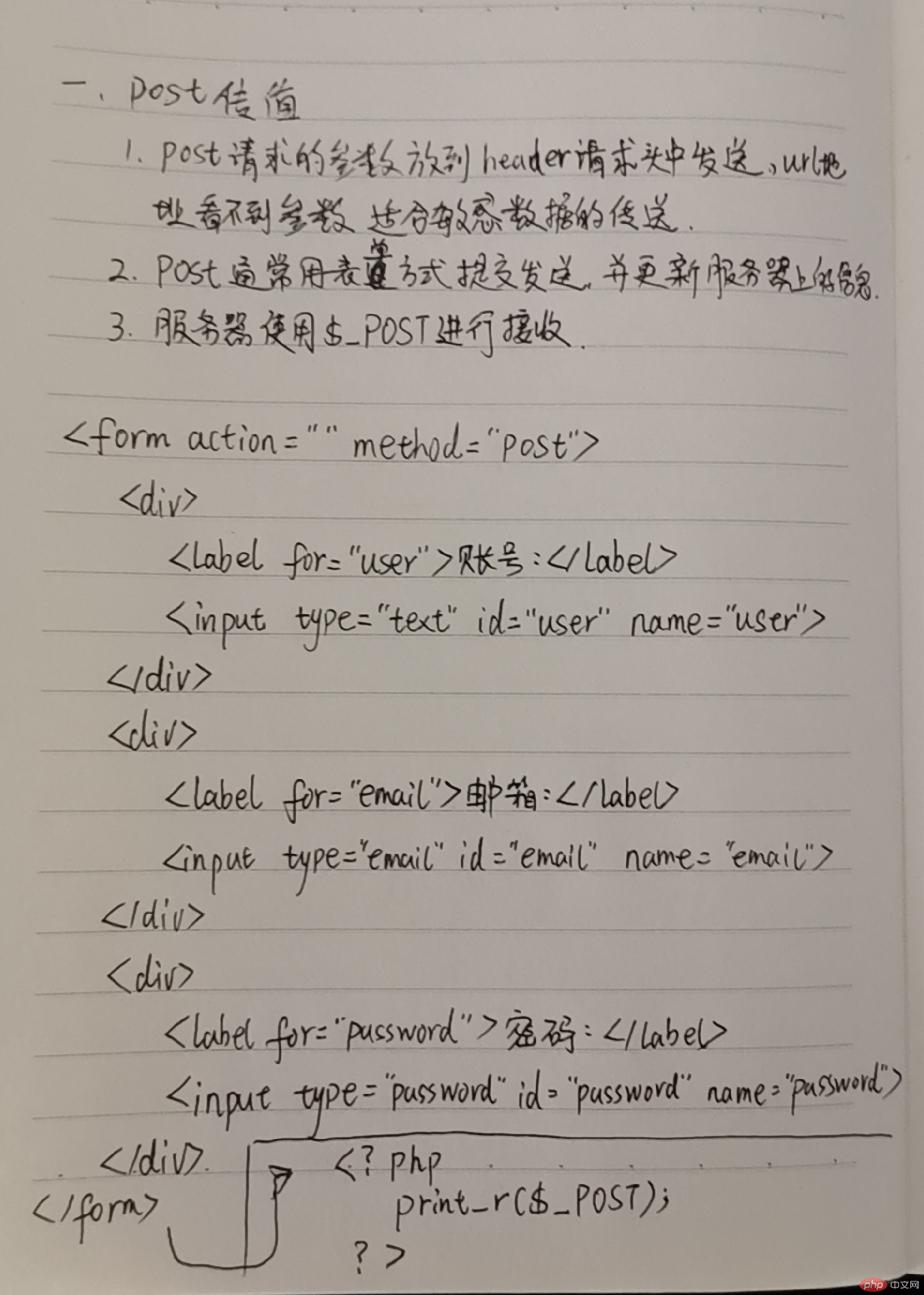 一、post传值
1. post请求的参数放到header请求头中发送,url地
址看不到参数 适合敏感数据的传送.
2. post通常用表单方式提交发送,并更新服务器上的信息.
3. 服务器使用$_POST进行接收.
<form action="" method="post">
<div>
<label for="user">账号:</label>
<input type="text" id="user" name="user">
</div>
<div>
<label for="email">邮箱:</label>
<input type="email" id="email" name="email">
</div>
<div>
<label for="password">密码:</label>
<input type="password" id="password" name="password">
</div>
</form>
<?php
print_r($_POST);
?>
php 中文网